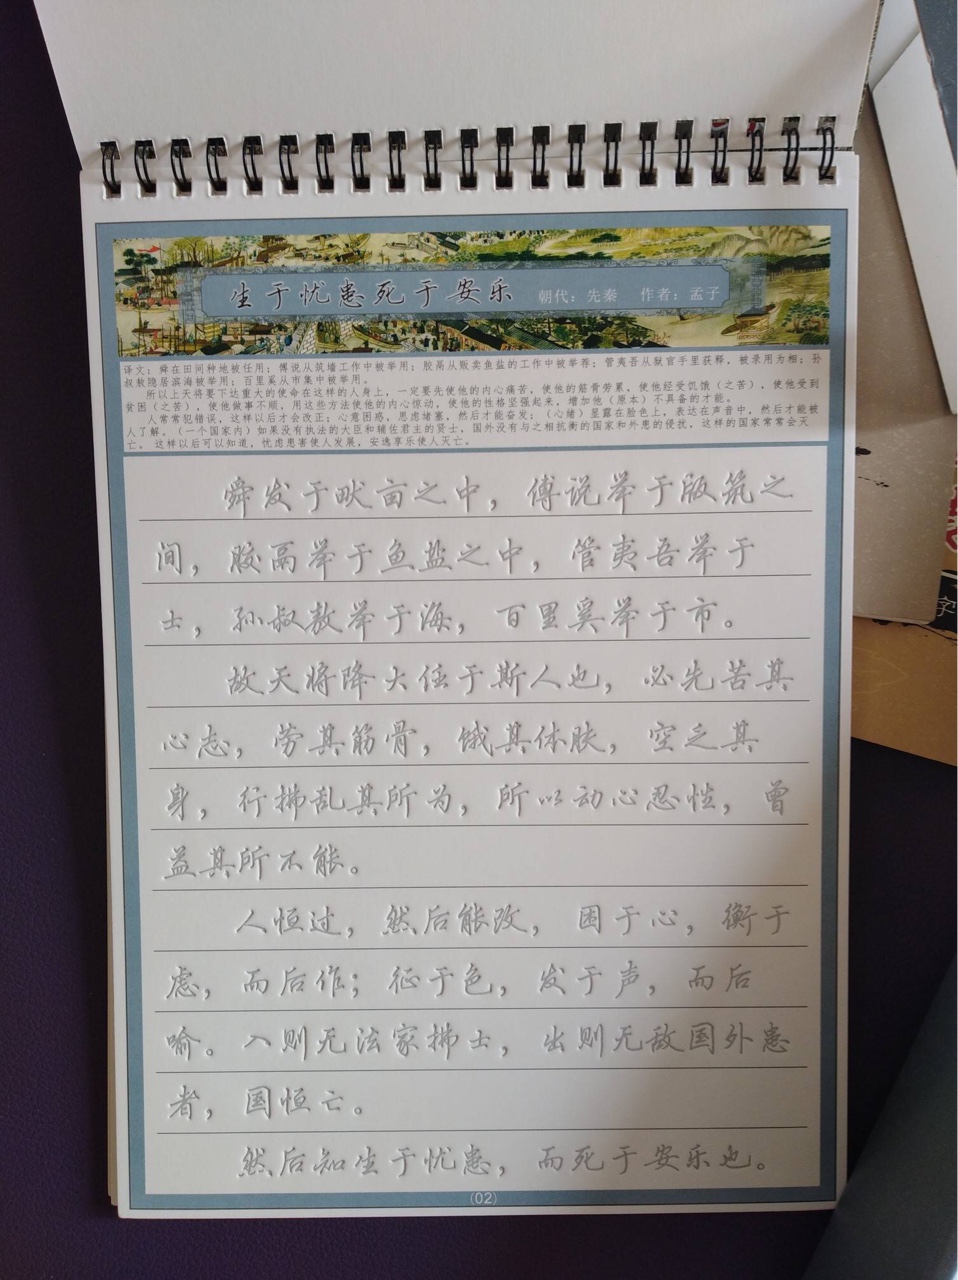 生于忧患死于安乐 朝代：先秦 作者：孟子
译文：舜在田间种地被任用；傅说从筑墙工作中被举用；胶鬲从贩卖鱼盐的工作中被举荐；管夷吾从狱官手里获释，被录用为相；孙
叔敖隐居滨海被举用；百里奚从市集中被举用。
所以上天将要下达重大的使命在这样的人身上，一定要先使他的内心痛苦，使他的筋骨劳累，使他经受饥饿（之苦），使他受到
贫困（之苦），使他做事不顺，用这些方法使他的内心惊动，使他的性格坚强起来，增加他（原本）不具备的才能。
人常常犯错误，这样以后才会改正；心意困惑，思虑堵塞，然后才能奋发；（心绪）显露在脸色上，表达在声音中，然后才能被
人了解。（一个国家内）如果没有执法的大臣和辅佐君主的贤士，国外没有与之相抗衡的国家和外患的侵扰，这样的国家常常会灭
亡。这样以后可以知道，忧虑患害使人发展，安逸享乐使人灭亡。
舜发于畎亩之中，傅说举于版筑之
间，胶鬲举于鱼盐之中，管夷吾举于
士，孙叔敖举于海，百里奚举于市。
故天将降大任于斯人也，必先苦其
心志，劳其筋骨，饿其体肤，空乏其
身，行拂乱其所为，所以动心忍性，曾
益其所不能。
人恒过，然后能改，困于心，衡于
虑，而后作；征于色，发于声，而后
喻。入则无法家拂士，出则无敌国外患
者，国恒亡。
然后知生于忧患，而死于安乐也。
(02)
字